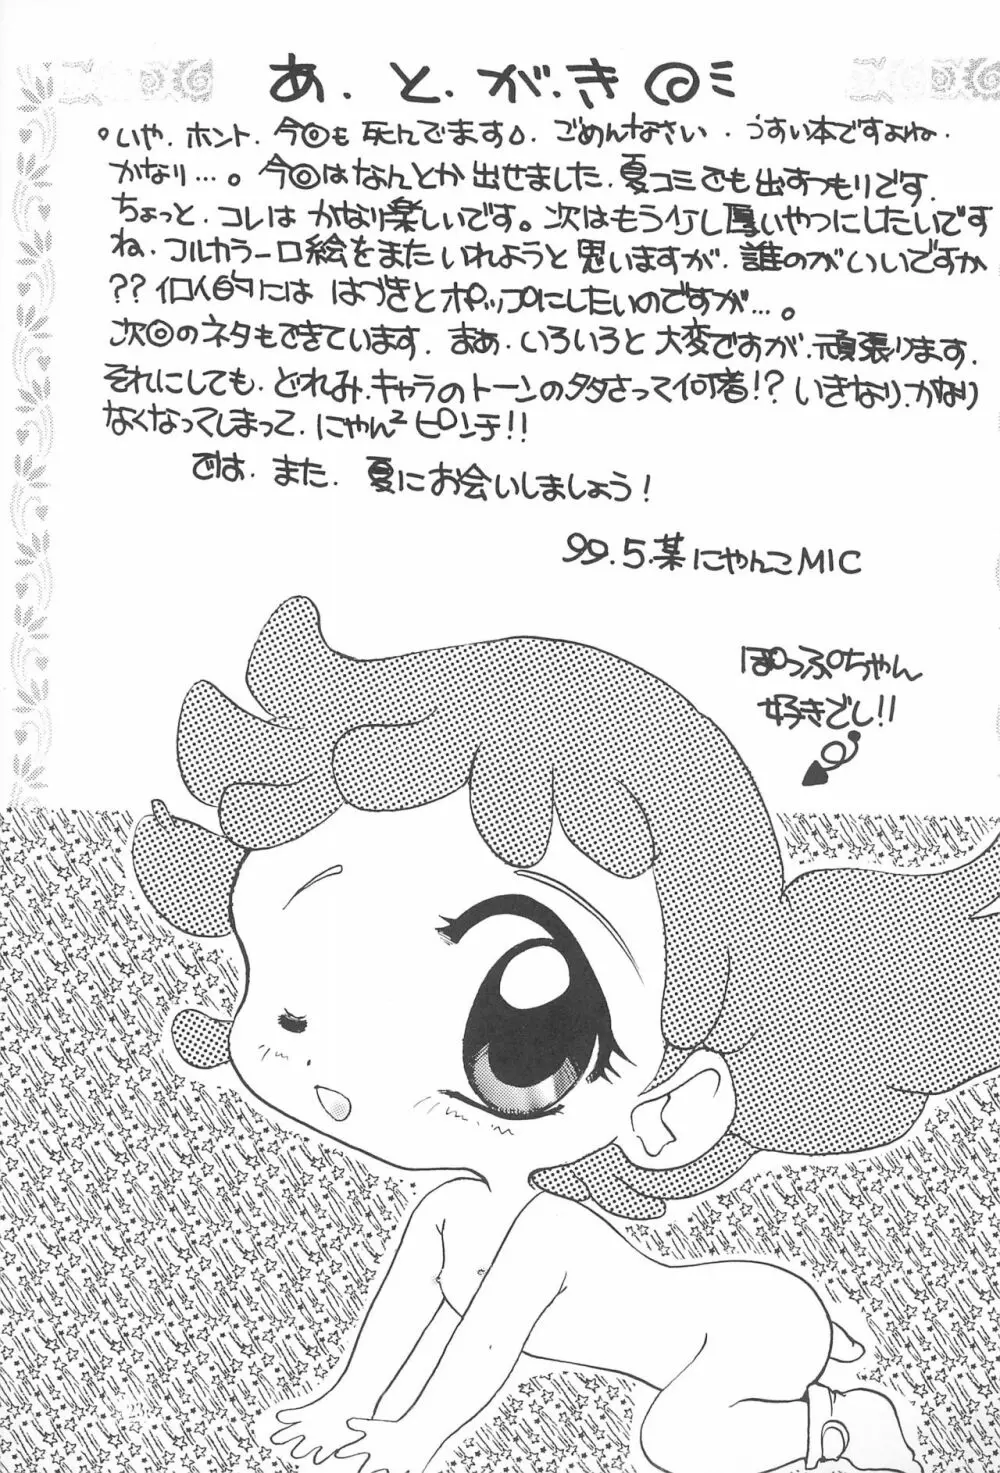 あ.と.が.き
いや.ホント.今回も死んでます.ごめんなさい.うすい本ですよね.
かなり…。今回はなんとか出せました.夏コミでも出すつもりです.
ちょっと.コレはかなり楽しいです。次はもう少し厚いやつにしたいです
ね.フルカラー口絵をまたいれようと思いますが.誰のがいいですか
??個人的にははづきとポップにしたいのですが…。
次回のネタもできています.まぁ.いろいろと大変ですが.頑張ります.
それにしても.どれみ.キャラのトーンのタタさって何者!?いきなり.かなり
なくなってしまって.にゃん²ピンチ!!
では.また.夏にお会いしましょう!
99.5.某にゃんこMIC
ぽっぷちゃん
好きでし!!